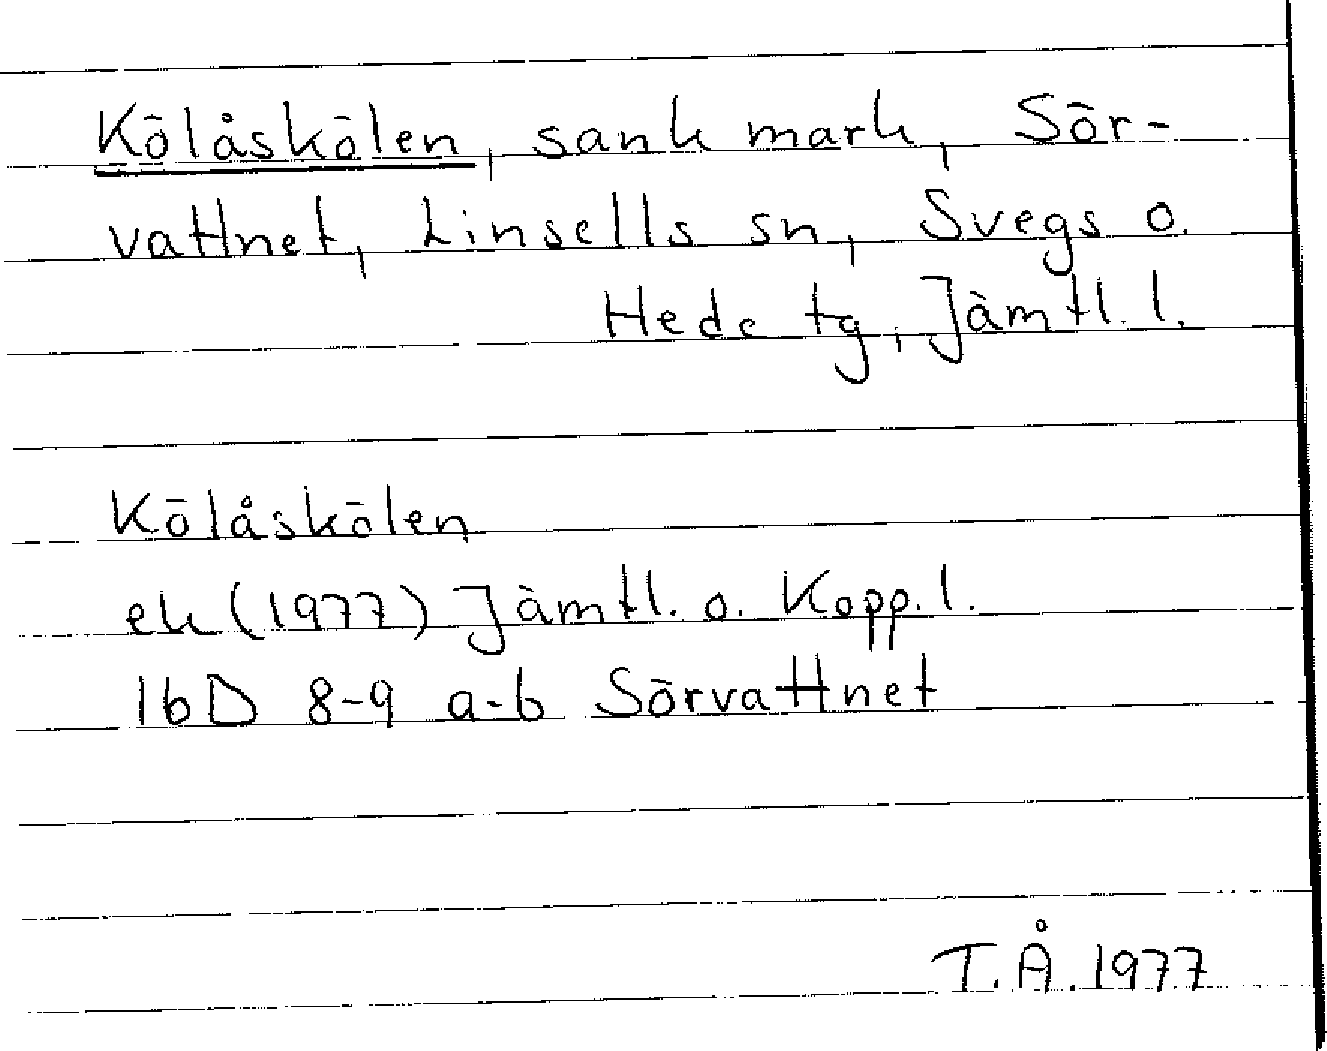 Kölåskölen, sank mark, Sör-
vattnet, Linsells sn, Svegs o.
Hede tg, Jämtl. l.
Kölåskölen
ek (1977) Jämtl. o. Kopp. l.
16D 8-9 a-b Sörvattnet
T.Å. 1977